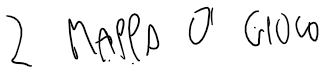 2 MAPPA DI GIOCO